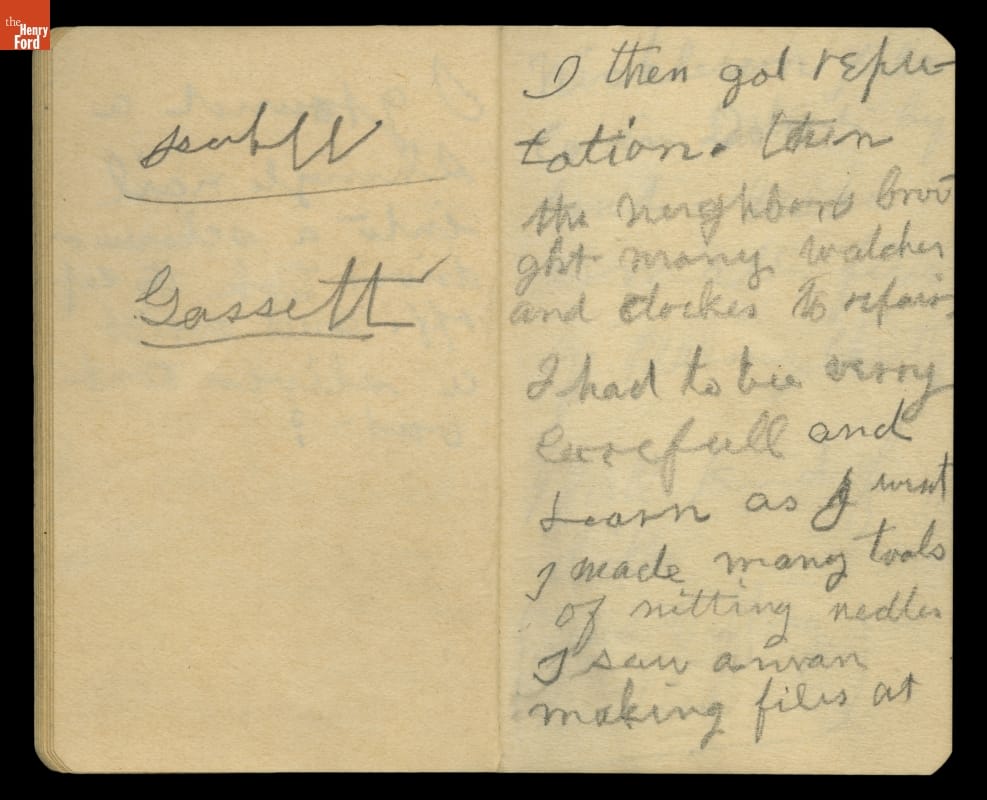 the
Henry
Ford
Gassett
I then got repu-
tation. then
the neighbors brou
ght many watches
and clockes to repair.
I had to bee verry
carefull and
Learn as I went
I made many tools
of nitting nedles
I saw a man
making files at